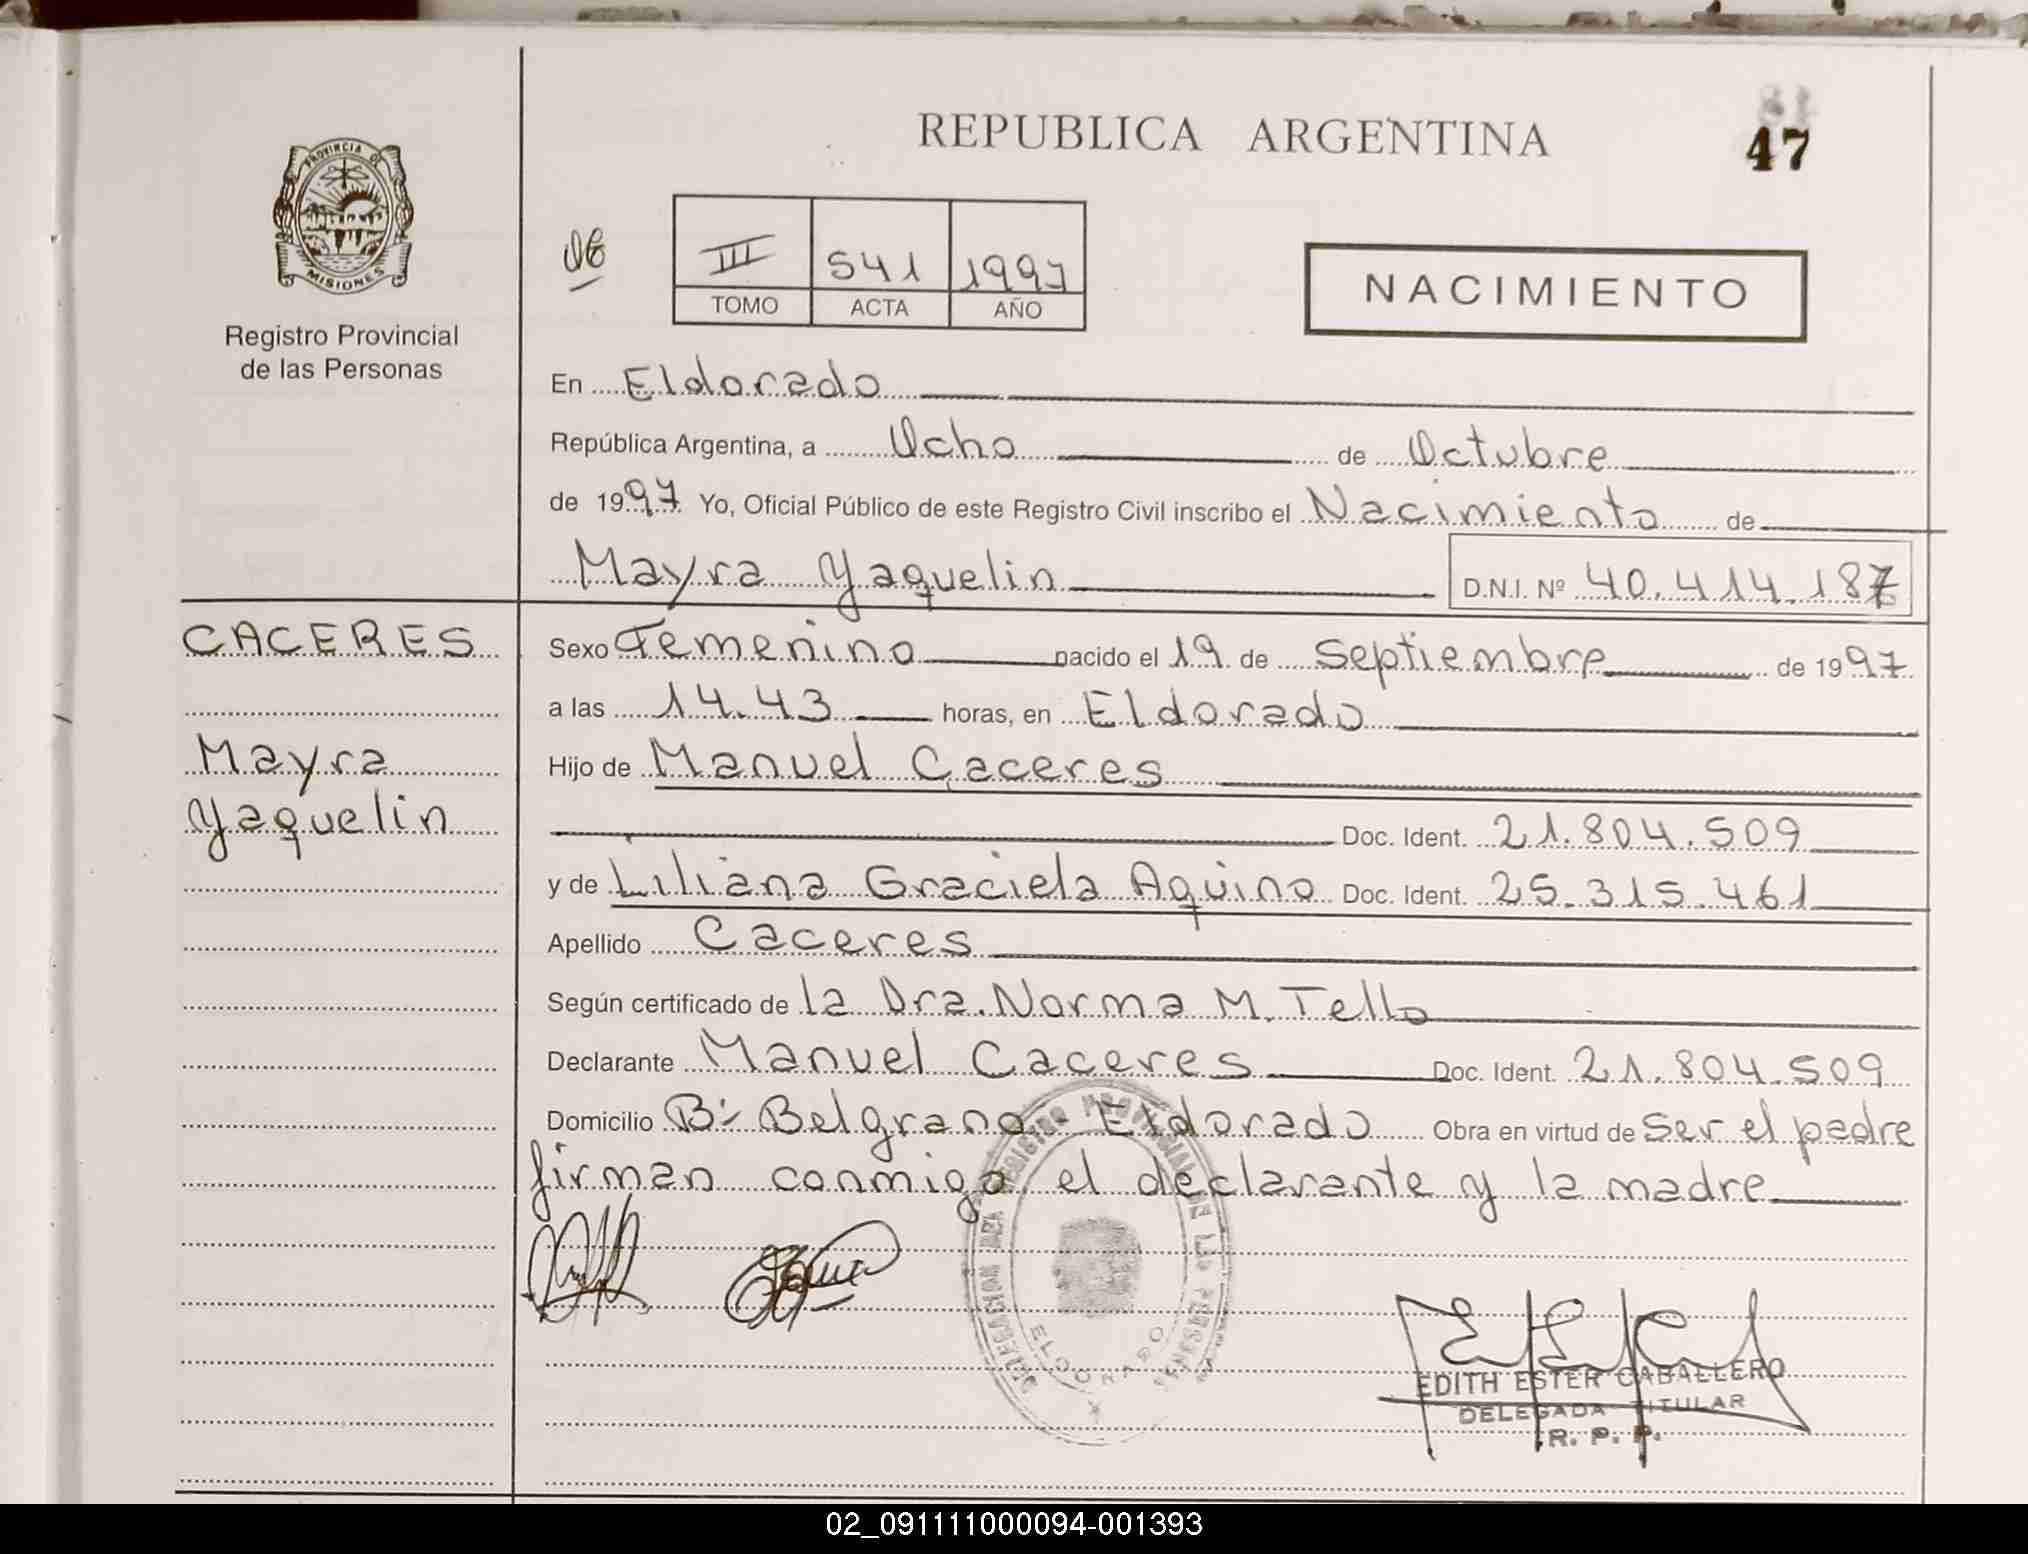 REPUBLICA ARGENTINA
47
PROVINCIA D
MISIONES
Registro Provincial
de las Personas
III 541 1997
TOMO ACTA AÑO
NACIMIENTO
En Eldorado
República Argentina, a Ocho de Octubre
de 1997 Yo, Oficial Público de este Registro Civil inscribo el Nacimiento de
Mayra Yaquelin D.N.I. Nº 40.414.187
CACERES
Mayra
Yaquelin
Sexo Femenino nacido el 19 de Septiembre de 1997
a las 14.43 horas, en Eldorado
Hijo de Manuel Caceres
Doc. Ident. 21.804.509
y de Liliana Graciela Aquino Doc. Ident. 25.315.461
Apellido Caceres
Según certificado de la Dra. Norma M. Tello
Declarante Manuel Caceres Doc. Ident. 21.804.509
Domicilio Bº Belgrano Eldorado Obra en virtud de ser el padre
firman conmigo el declarante y la madre
ELDORADO
EDITH ESTER CABALLERO
DELEGADA TITULAR
R. P. P.
02_091111000094-001393